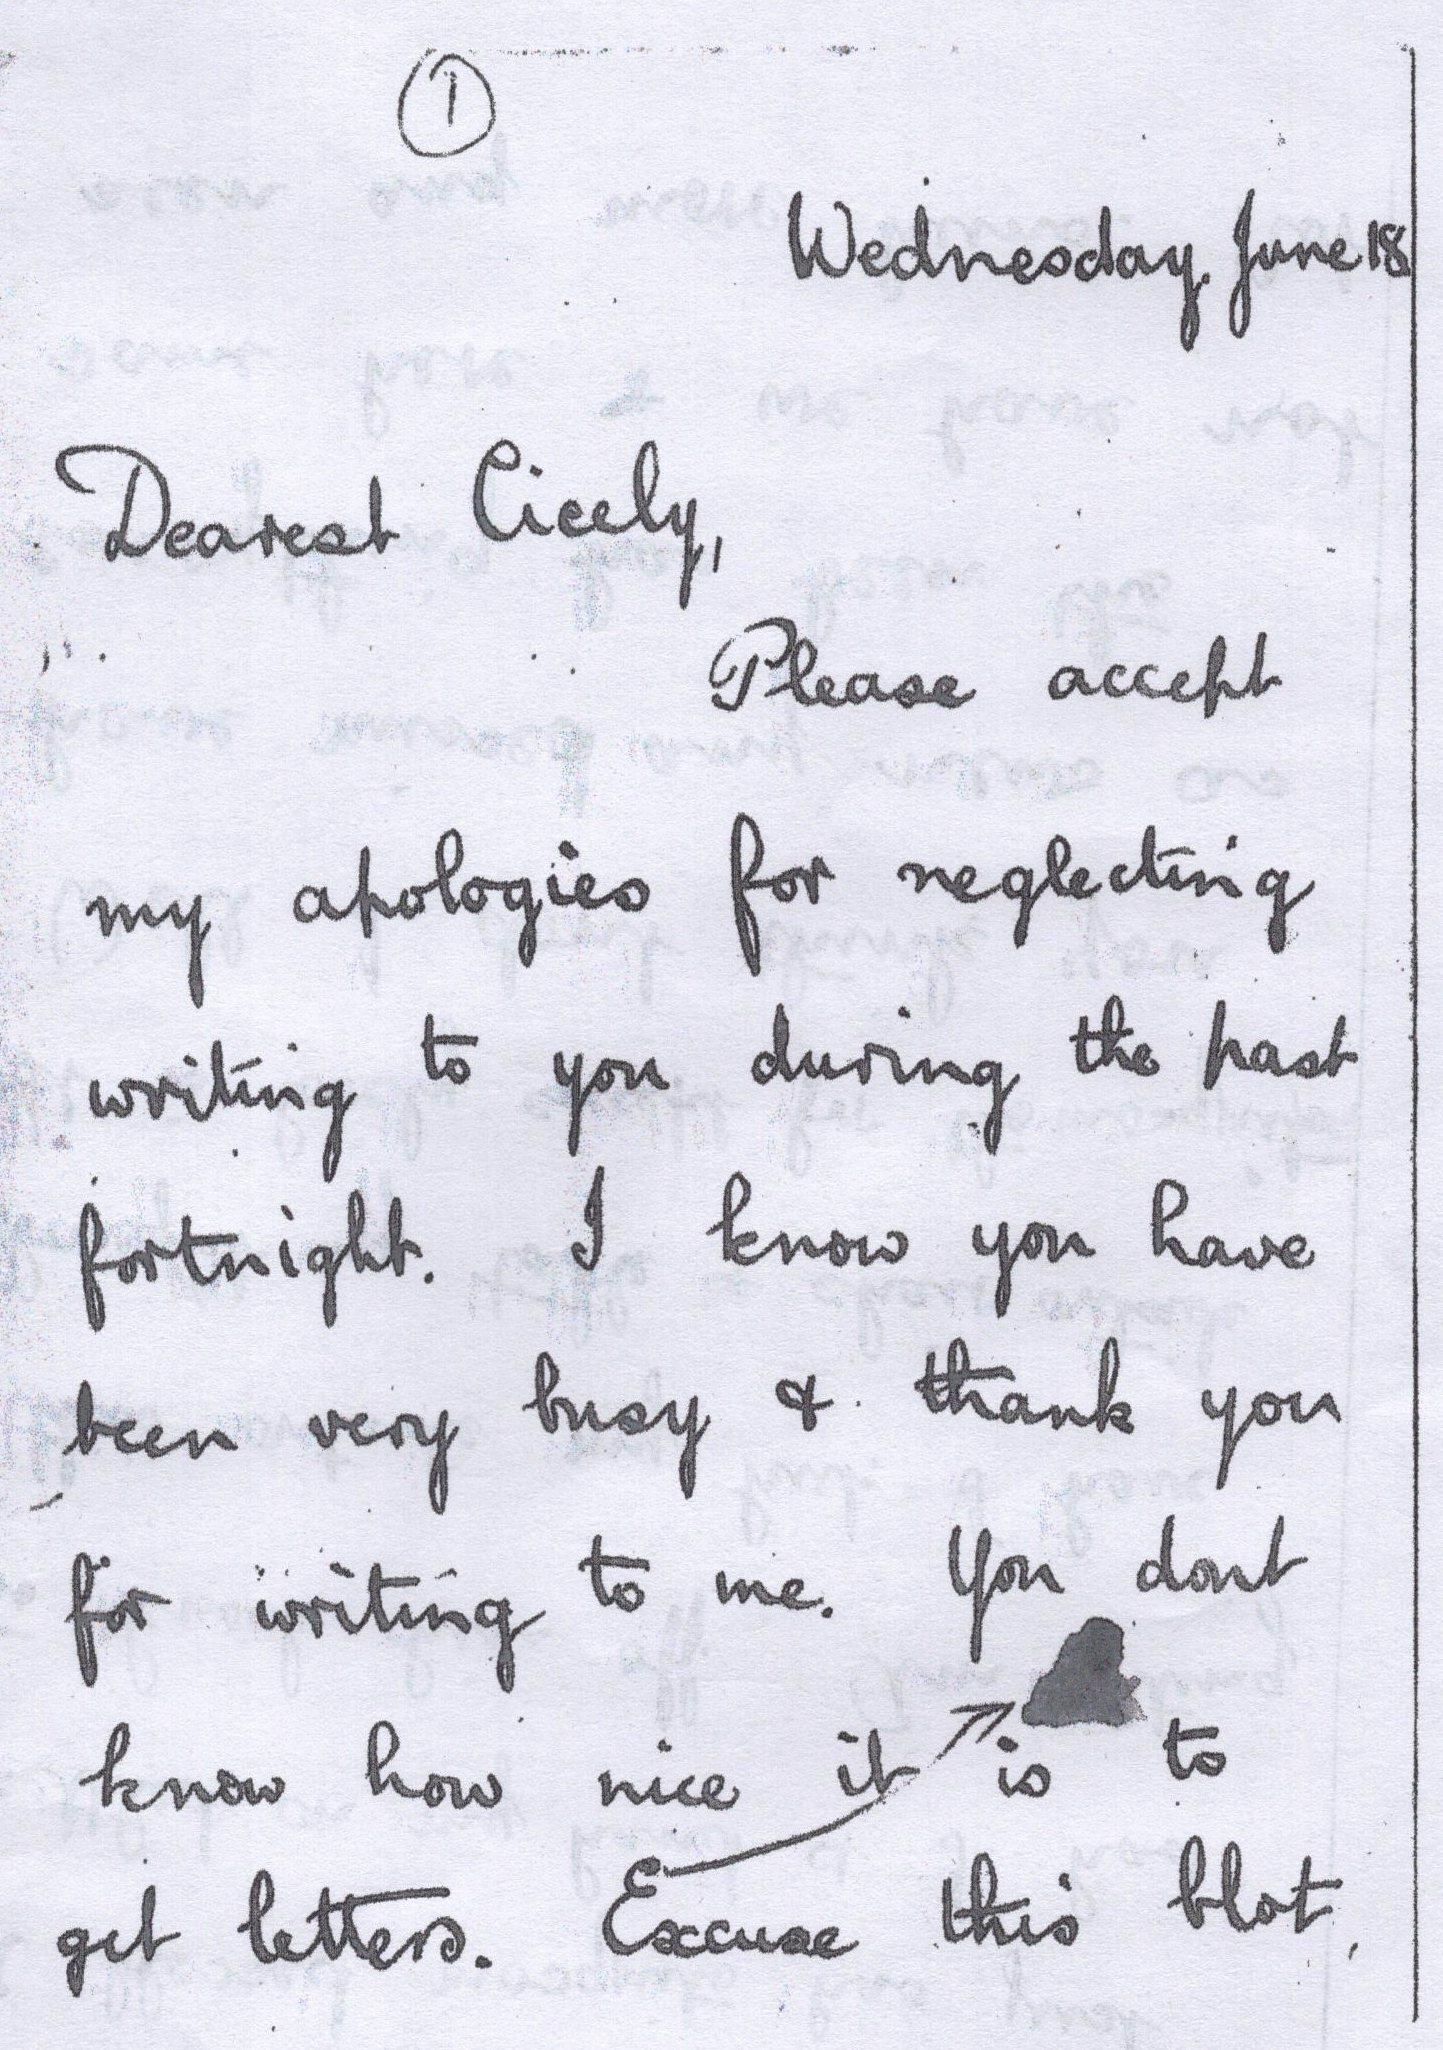 1
Wednesday. June 18
Dearest Cicely,
Please accept
my apologies for neglecting
writing to you during the past
fortnight. I know you have
been very busy & thank you
for writing to me. You dont
know how nice it is to
get letters. Excuse this blot,